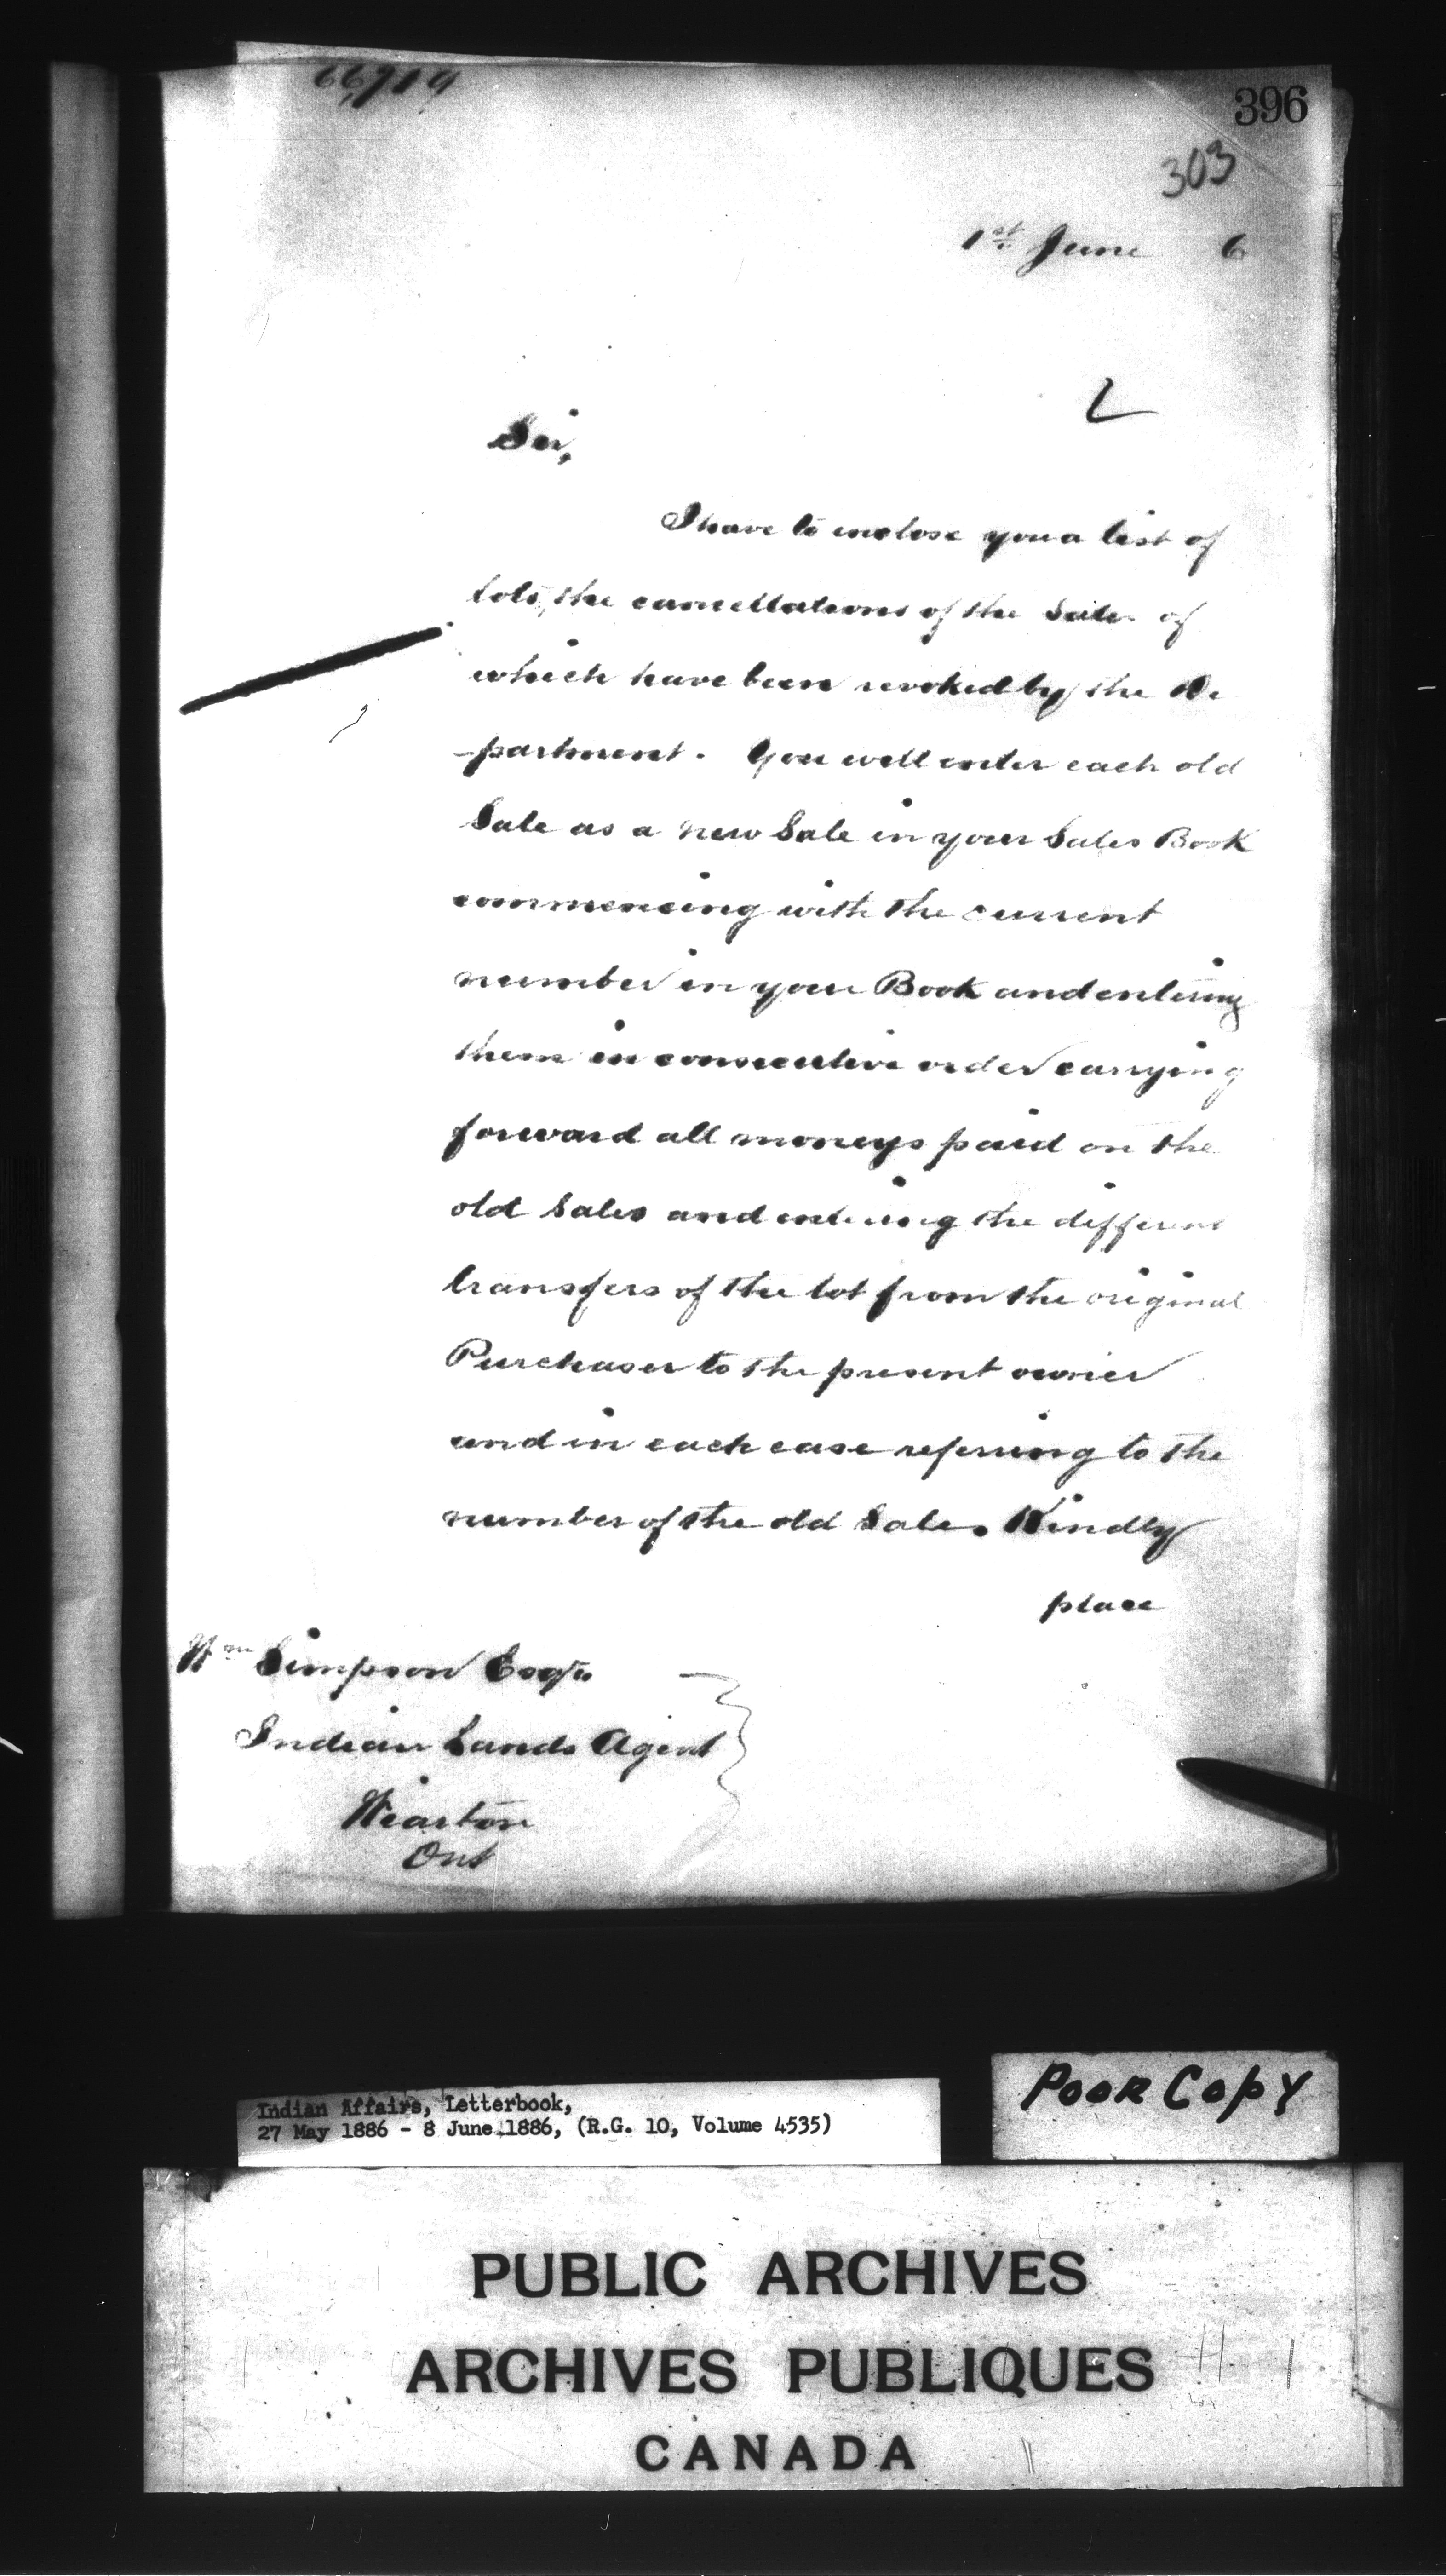 66719
396
303
1st June 6
L
Sir,
I have to enclose you a list of
lots, the cancellations of the Sales of
which have been revoked by the De
-partment. You will enter each old
Sale as a new Sale in your Sales Book
commencing with the current
number in your Book and entering
them in consecutive order carrying
forward all moneys paid on the
old Sales and entering the different
transfers of the lot from the original
Purchaser to the present owner
and in each case referring to the
number of the old Sale. Kindly
place
Wm Simpson Esqre
Indian Lands Agent
Wiarton
Ont
POOR COPY
Indian Affairs, Letterbook,
27 May 1886 - 8 June 1886, (R.G. 10, Volume 4535)
PUBLIC ARCHIVES
ARCHIVES PUBLIQUES
CANADA